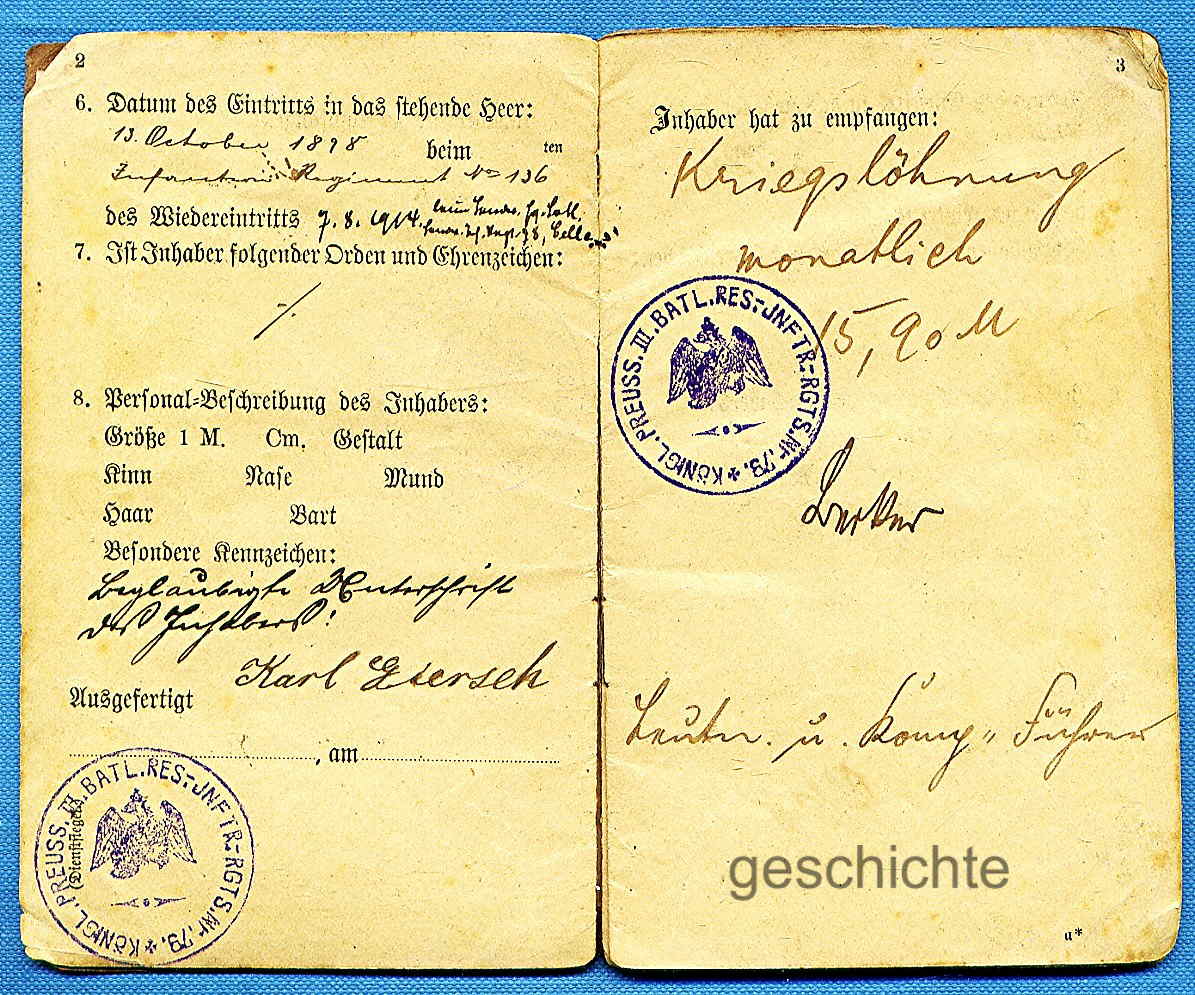 2
6. Datum des Eintritts in das stehende Heer:
13. October 1898 beim ten
Infanterie Regiment No 136
des Wiedereintritts 7. 8. 1914.
7. Ist Inhaber folgender Orden und Ehrenzeichen:
-/.
8. Personal-Beschreibung des Inhabers:
Größe 1 M. Cm. Gestalt
Kinn Nase Mund
Haar Bart
Besondere Kennzeichen:
Beglaubigte Unterschrift
des Inhabers!
Karl
Ausgefertigt
, am
(Dienstsiegel)
KÖNIGL. PREUSS. III. BATL. RES.-JNFTR.-RGTS. Nr. 79.
3
Inhaber hat zu empfangen:
Kriegslöhnung
monatlich
15,90 M
KÖNIGL. PREUSS. III. BATL. RES.-JNFTR.-RGTS. Nr. 79.
Leutn. u. Komp. Führer
geschichte
a*